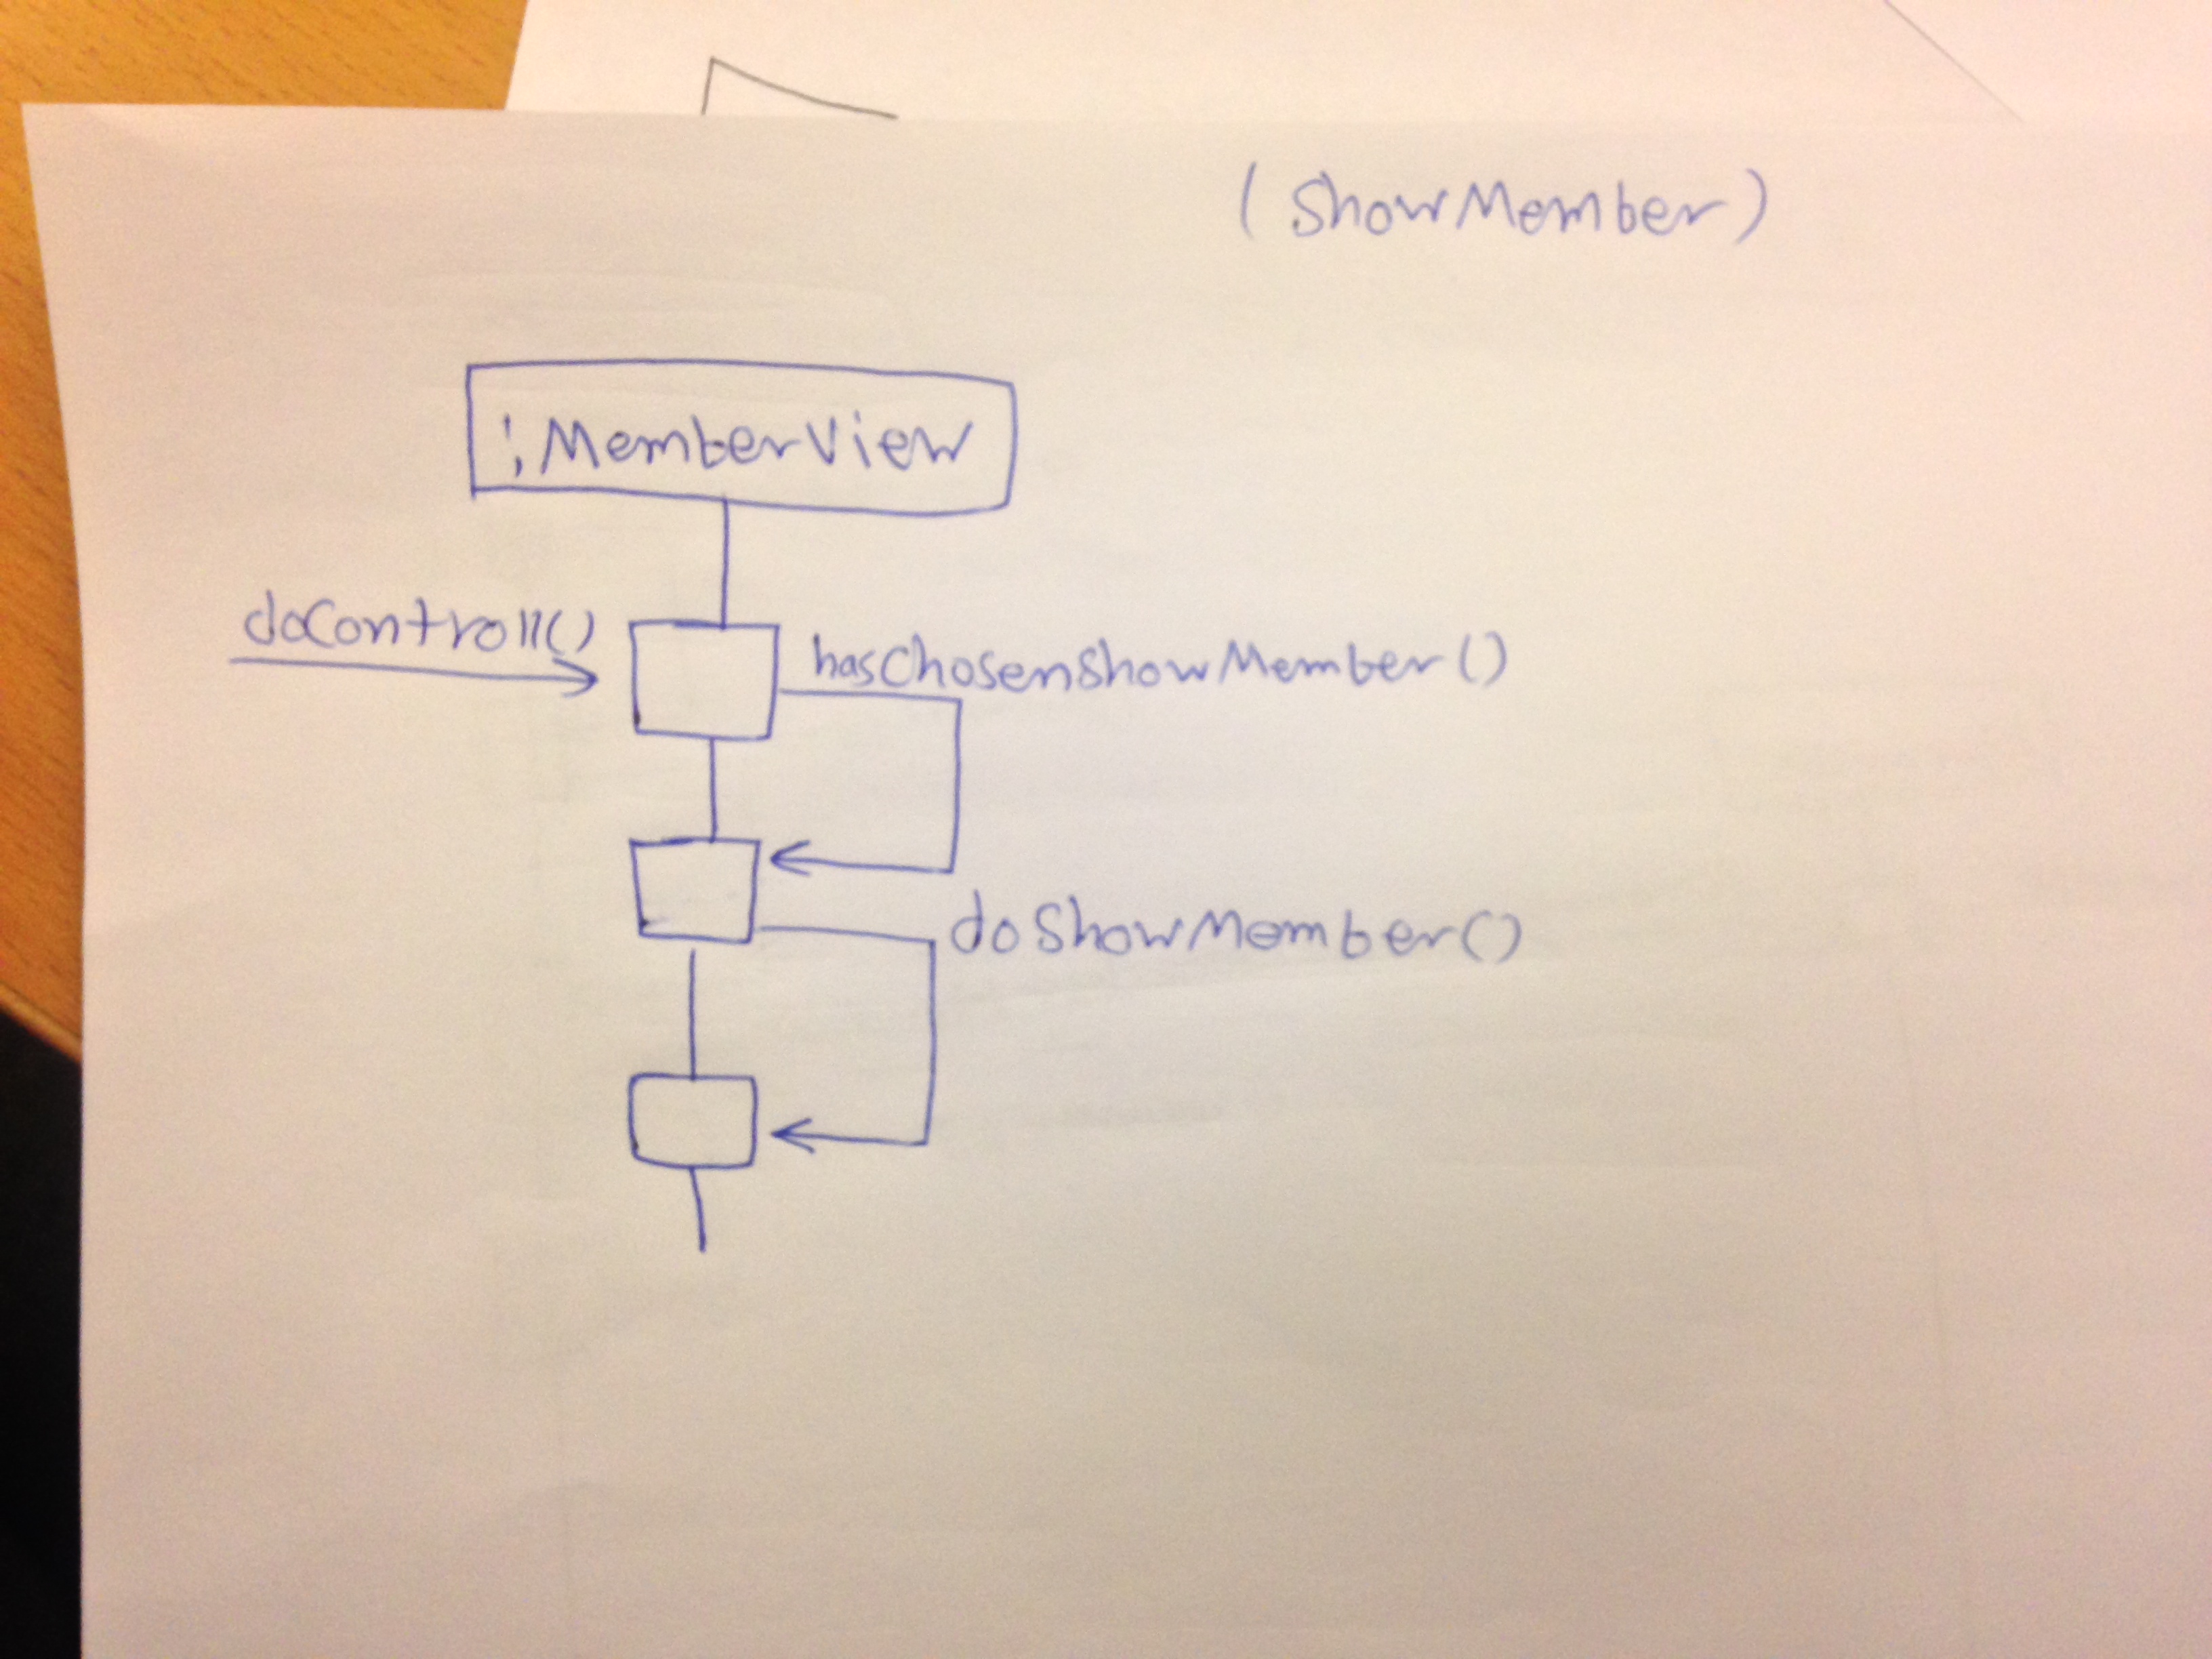 (ShowMember)
:MemberView
doControll()
hasChosenShowMember()
doShowMember()